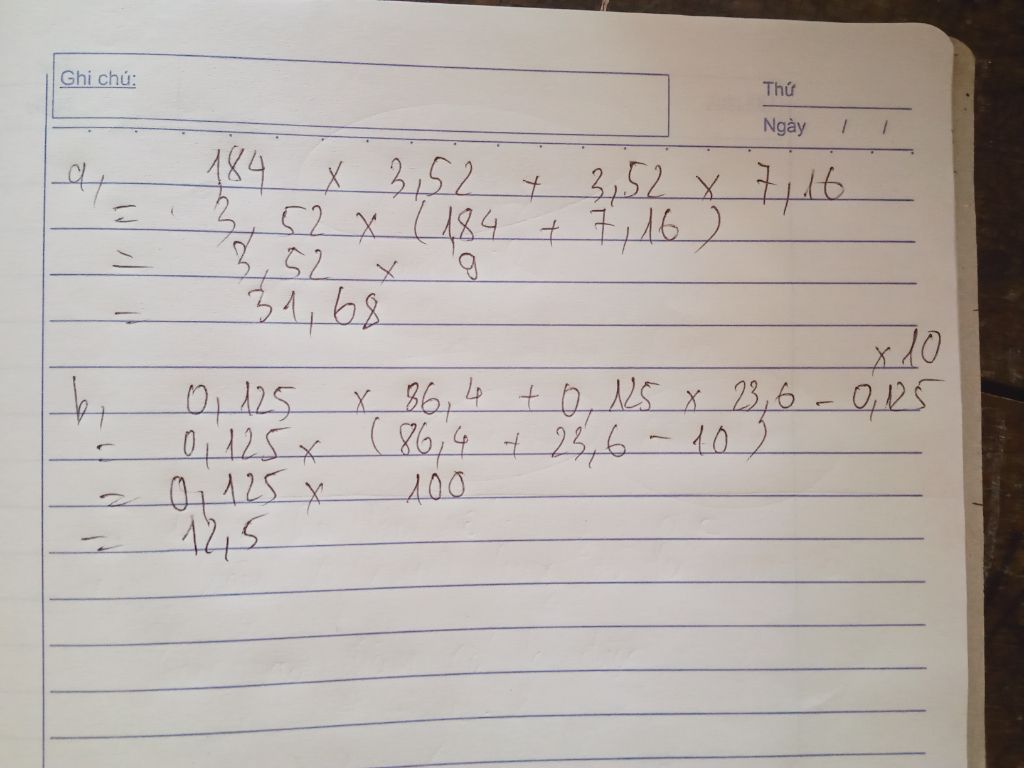 Ghi chú:
Thứ
Ngày / /
a, 184 x 3,52 + 3,52 x 7,16
= 3,52 x (1,84 + 7,16)
= 3,52 x 9
= 31,68
x 10
b, 0,125 x 86,4 + 0,125 x 23,6 - 0,125
= 0,125 x (86,4 + 23,6 - 10)
= 0,125 x 100
= 12,5